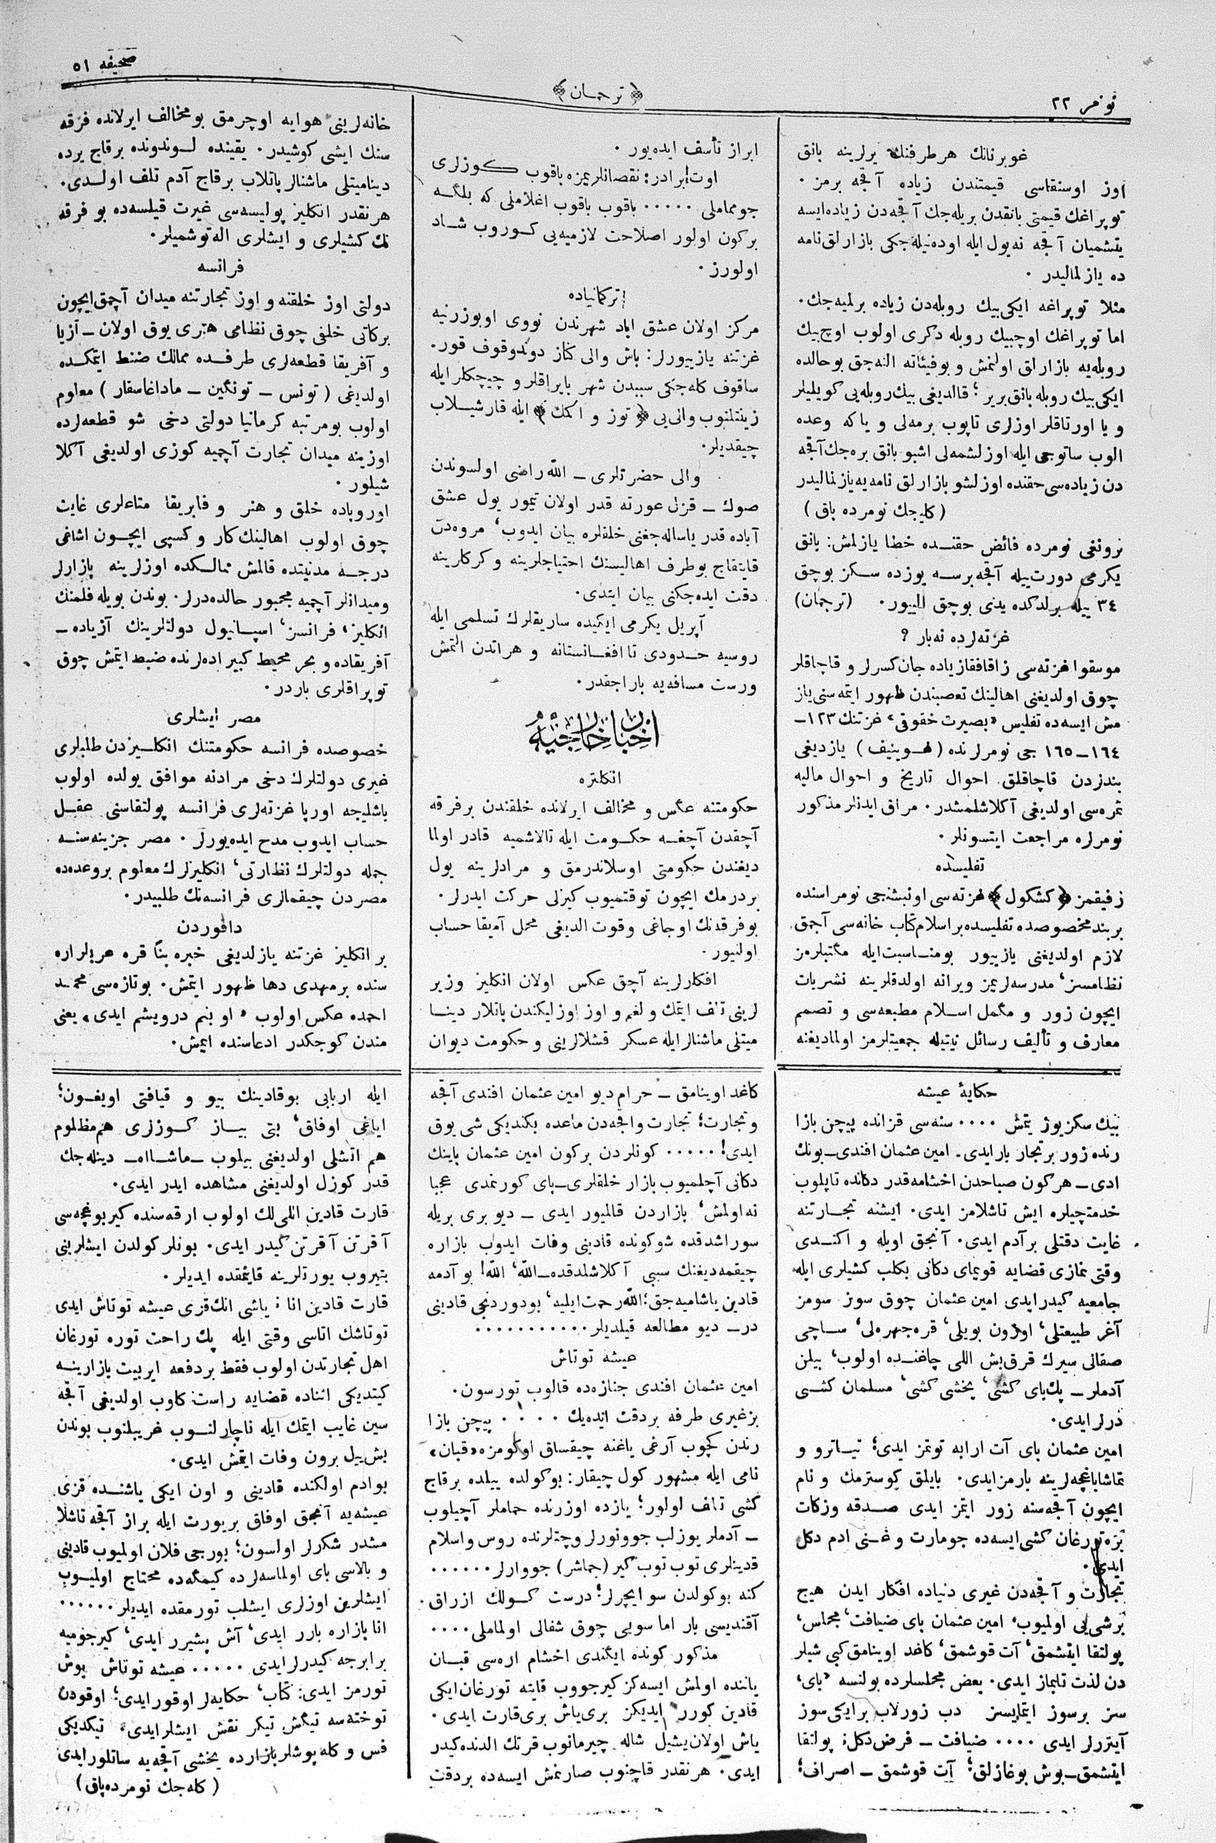 صحیفه ٥١
﴿ ترجمان ﴾
نومر ٢٢
غوبرنانك هر طرفنك یرلرینه بانق
اوز اوسنقاسی قیمتندن زیاده آقچه برمز .
توپراغك قیمتی بانقدن بریله‌جك آقچه‌دن زیاده ایسه
یتشمیان آقچه نه یول ایله اوده‌نیله‌جكی بازارلق‌نامه
ده یازلمالیدر .
مثلا توپراغه ایكی بیك روبله‌دن زیاده برلمیه‌جك.
اما توپراغك اوچبیك روبله دكری اولوب اوچ بیك
روبله‌یه بازارلق اولنمش و بوفیئاته النه‌جق بوحالده
ایكی بیك روبله بانق بریر ؛ قالدیغی بیك روبله‌یی كویلیلر
و یا اورتاقلر اوزلری تاپوب برمه‌لی و یاكه وعده
الوب ساتوجی ایله اوزلشمه‌لی اشبو بانق بره‌جك آقچه
دن زیاده‌سی حقنده اوزلشو بازارلق نامه‌یه یازلمالیدر
( كلیجك نومرده باق )
برونغی نومرده فائض حقنده خطا یازلمش: بانق
یكرمی دورت ییله آقچه برسه یوزده سكز بوچق
٣٤ ییله برلدكده یدی بوچق الییور. (ترجمان)
غزته‌لرده نه‌بار ؟
موسقوا غزته‌سی زاقافقازیاده جان كسرلر و قاچاقلر
چوق اولدیغنی اهالینك تعصبندن ظهور ایتمه‌سنی یاز
مش ایسه‌ده تفلیس «بصیرت حقوقی» غزتنك ١٢٣ـ
١٦٤ـ١٦٥ جی نومرلرنده ( لهوینیف ) یازدیغی
بندنزدن قاچاقلق، احوال تاریخ و احوال مالیه
ثمره‌سی اولدیغی آكلاشلمشدر. مراق ایدنلر مذكور
نومرلره مراجعت ایتسونلر .
تفلیسده
رفیقمز ﴿ كشكول ﴾ غزته‌سی اونبشنجی نومراسنده
بربند مخصوصده تفلیسده بر اسلام كتاب خانه‌سی آچمق
لازم اولدیغنی یازییور بومناسبت ایله مكتبلرمز
نظامسز، مدرسه‌لریمز ویرانه اولدقلرینه نشریات
ایچون زور و مكمل اسلام مطبعه‌سی و تصمیم
معارف و تألیف رسائل نیتیله جمعیتلرمز اولمادیغنه
ابراز تأسف ایده‌یور .
اوت! برادر: نقصانلریمزه باقوب كوزلری
جوماملی ..... باقوب باقوب اغلاملی كه بلگه
بركون اولور اصلاحت لازمیه‌یی كوروب شاد
اولورز .
تركمانیاده
مركز اولان عشق اباد شهرندن نووی اوبوزرنیه
غزتنه یازییورلر: باش والی كناز دوندوقوف قور.
ساقوف كله‌جكی سببدن شهر بایراقلر و چیچكلر ایله
زینتلنوب والی‌یی ﴿ توز و اكمك ﴾ ایله قارشیلاب
چیقدیلر.
والی حضرتلری ـ الله راضی اولسوندن
صوك ـ قزل عورته قدر اولان تیمور یول عشق
آباده قدر یاساله‌جغنی خلقلره بیان ایدوب، مروه‌دن
قایتقاج بوطرف اهالیسنك احتیاجلرینه و كركلرینه
دقت ایده‌جكنی بیان ایتدی.
آپریل یكرمی ایكیده ساریقلرك تسلمی ایله
روسیه حدودی تا افغانستانه و هراتدن التمش
ورست مسافه‌یه بارا‌جقدر.
اخبار خارجیه
انكلتره
حكومتنه عكس و مخالف ایرلانده خلقندن برفرقه
آچقدن آچغه حكومت ایله تالاشمیه قادر اولما
دیغندن حكومتی اوسلاندرمق و مرادلرینه یول
بردرمك ایچون توقتمیوب كیزلی حركت ایدرلر.
بوفرقه‌نك اوجاغی وقوت الدیغی محل آمریقا حساب
اولنیور.
افكارلرینه آچق عكس اولان انكلیز وزیر
لرینی تلف ایتمك و لغم و اوز اوزلیكندن پاتلار دینا
میتلی ماشنالر ایله عسكر قشلالرینی و حكومت دیوان
خانه‌لرینی هوایه اوچرمق بومخالف ایرلانده فرقه
سنك ایشی كوشیدر. یقینده لوندونده برقاچ یرده
دینامیتلی ماشنالر پاتلاب برقاچ آدم تلف اولدی.
هرنقدر انكلیز پولیسه‌سی غیرت قیلسه‌ده بو فرقه
نك كشیلری و ایشلری اله توشمیلر.
فرانسه
دولتی اوز خلقنه و اوز تجارتنه میدان آچمق ایچون
بركاتی خلقی چوق نظامی هنری یوق اولان ـ آزیا
و آفریقا قطعه‌لری طرفده ممالك ضبط ایتمكده
اولدیغی ( تونس ـ تونكین ـ ماداغاسقار ) معلوم
اولوب بومرتبه كرمانیا دولتی دخی شو قطعه‌لرده
اوزینه میدان تجارت آچمیه كوزی اولدیغی آكلا
شیلور .
اوروپاده خلق و هنر و فابریقا متاعلری غایت
چوق اولوب اهالینك كار و كسبی ایچون اشاغی
درجه مدنیتده قالمش ممالكده اوزلرینه پازارلر
ومیدانلر آچمیه مجبور حالده‌درلر. بوندن بویله فلمنك
انكلیز، فرانسز، اسپانیول دولتلرینك آزیاده ـ
آفریقاده و بحر محیط كبیر اده‌لرنده ضبط ایتمش چوق
توپراقلری باردر.
مصر ایشلری
خصوصده فرانسه حكومتنك انكلیزدن طلبلری
غیری دولتلرك دخی مرادنه موافق یولده اولوب
باشلیجه اورپا غزته‌لری فرانسه پولتقاسنی عقل
حساب ایدوب مدح ایده‌یورلر. مصر جزینه‌سنه
جمله دولتلرك نظارتی، انكلیزلرك معلوم بروعده‌ده
مصردن چیقمالری فرانسه‌نك طلبیدر.
دافوردن
بر انكلیز غزتنه یازلدیغی خبره بنا‌ً قره عربلر اره
سنده برمهدی دها ظهور ایتمش. بوتازه‌سی محمد
احمده عكس اولوب « او بنم درویشم ایدی » یعنی
مندن كوچكدر ادعاسنده ایمش.
حكایهٔ عیشه
بیك سكزیوز یتمش .... سنه‌سی قزانده پیچن بازا
رنده زور برتجار بار ایدی. امین عثمان افندی ـ بونك
ادی ـ هركون صباحدن اخشامه قدر دكانده تاپلوب
خدمتچیلره ایش تاشلامز ایدی. ایشنه تجارتنه
غایت دقتلی برآدم ایدی. آنجق اویله و اكندی
وقتی نمازی قضایه قویمای دكانی بكلب كشیلری ایله
جامعیه كیدر ایدی امین عثمان چوق سوز سومز
آغر طبیعتلی، اوزون بویلی، قره چهره‌لی، ساچی
صقالی سیرك قرق بش اللی چاغنده اولوب، بیلن
آدملر ـ پك بای كشی، یخشی كشی، مسلمان كشی
درلر ایدی.
امین عثمان بای آت ارابه توتمز ایدی؛ تیاترو و
تماشا باغچه‌لرینه بارمز ایدی. بایلق كوسترمك و نام
ایچون آقچه‌سنه زور ایتمز ایدی صدقه وزكات
تزه‌تورغان كشی ایسه‌ده جومارت و غنی ادم دكل
ایدی.
تجارت و آقچه‌دن غیری دنیاده افكار ایدن هیچ
برشی‌یی اولمیوب، امین عثمان بای ضیافت، مجلس،
پولتقا ایتشمق، آت قوشمق، كاغد اوینامق كبی شیلر
دن لذت تاپماز ایدی. بعض مجلسلرده بولنسه «بای،
سز برسوز ایتمایسز» دب زورلاب برایكی سوز
آیترلر ایدی .... ضیافت ـ فرض دكل؛ پولتقا
ایتشمق ـ بوش بوغازلق؛ آت قوشمق ـ اصراف؛
كاغد اوینامق ـ حرام دیو امین عثمان افندی آقچه
و تجارت؛ تجارت واقچه‌دن ماعده بكندیكی شی یوق
ایدی! ..... كونلردن بركون امین عثمان باینك
دكانی آچلمیوب بازار خلقلری ـ بای كورنمدی عجبا
نه‌اولمش، بازاردن قالمیور ایدی ـ دیو بری بریله
سوراشدقده شوكونده قادینی وفات ایدوب بازاره
چیقمه‌دیغنك سببی آكلاشلدقده ـ الله، الله! بوآدمه
قادین یاشامیه‌جق؛ الله رحمت ایلیه، بودوردنجی قادینی
در ـ دیو مطالعه قیلدیلر...........
عیشه توتاش
امین عثمان افندی جنازه‌ده قالوب تورسون.
بزغیری طرفه بردقت ایده‌یك .... پیچن بازا
رندن كچوب آرغی یاغنه چیقساق اوكومزه «قبان»
نامی ایله مشهور كول چیقار: بوكولده ییلده برقاچ
كشی تلف اولور؛ یازده اوزرنده حماملر آچیلوب
ـ آدملر یوزلب جوونورلر وچترنده روس واسلام
قدینلری توب توب كیر (چماشر) جووارلر......
كنه بوكولدن سو ایچرلر؛ درست كولك ازراق.
آقندیسی بار اما سویی چوق شفالی اولماملی....
مذكور كونده ایگندی اخشام اره‌سی قبان
یاننده اولمش ایسه‌كز كیرجووب قایته تورغان ایكی
قادین كورر ایدیكز. بری یاش بری قارت ایدی.
یاش اولان یشیل شاله چیرمانوب قرتك الدنده كیدر
ایدی. هرنقدر قاچنوب صارنمش ایسه‌ده بردقت
ایله اربابی بوقادینك بیو و قیافتی اویغون؛
ایاغی اوفاق، بتی بیاز كوزلری هم مظلوم
هم اتشلی اولدیغنی بیلوب ـ ماشاالله ـ دینله‌جك
قدر كوزل اولدیغنی مشاهده ایدر ایدی.
قارت قادین اللی‌لك اولوب ارقه‌سنده كیر بوغچه‌سی
آقرتن آقرتن كیدر ایدی. بونلر كولدن ایشلرینی
بتیروب یورتلرینه قایتمقده ایدیلر.
قارت قادین انا؛ یاشی انك قزی عیشه توتاش ایدی
توتاشك اتاسی وقتی ایله پك راحت توره تورغان
اهل تجارتدن اولوب فقط بردفعه ایربیت بازارینه
كیتدیكی اثناده قضایه راست كلوب اولدیغی آقچه
سین غایب ایتمك ایله ناچارلنوب غریبلنوب بوندن
بش ییل برون وفات ایتمش ایدی.
بوادم اولكنده قادینی و اون ایكی یاشنده قزی
عیشه‌یه آنجق اوفاق بریورت ایله براز آقچه تاشلا
مشدر شكرلر اولسون؛ بورجی فلان اولمیوب قادینی
و بالاسی بای اولماسه‌لرده كیمگه‌ده محتاج اولمیوب
ایشلرین اوزلری ایشلب تورمقده ایدیلر......
انا بازاره بارر ایدی، آش پیشیرر ایدی، كیرجومیه
برابرجه كیدرلر ایدی ..... عیشه توتاش بوش
تورمز ایدی: كتاب، حكایه‌لر اوقور ایدی؛ اوقودن
توخته‌سه تیگش تیكر نقش ایشلر ایدی، تیكدیكی
فس و كله‌پوشلر بازارده یخشی آقچه‌یه ساتلور ایدی
( كله‌جك نومرده باق )